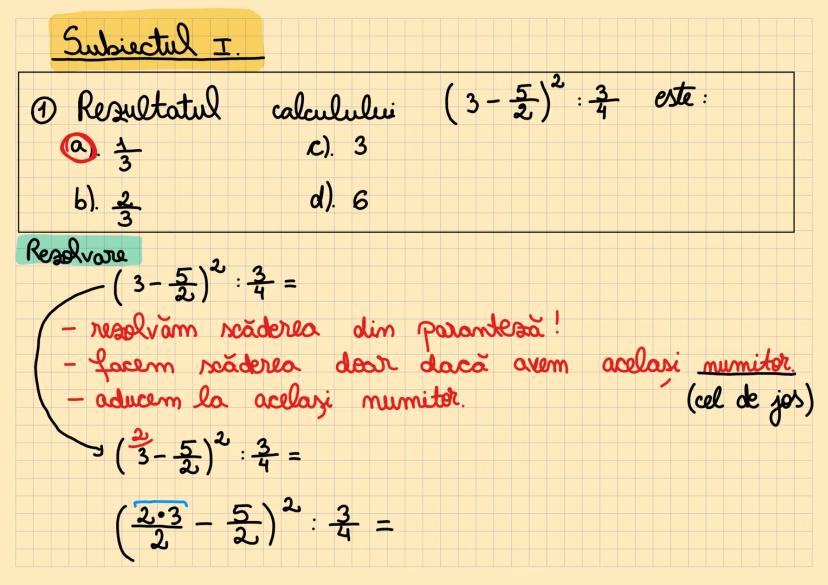 Subiectul I.
① Rezultatul calculului (3 - 5/2)² : 3/4 este :
a). 1/3 c). 3
b). 2/3 d). 6
Rezolvare
(3 - 5/2)² : 3/4 =
- rezolvăm scăderea din paranteză!
- facem scăderea doar dacă avem același numitor.
- aducem la același numitor. (cel de jos)
(²⁾3 - 5/2)² : 3/4 =
(2•3/2 - 5/2)² : 3/4 =